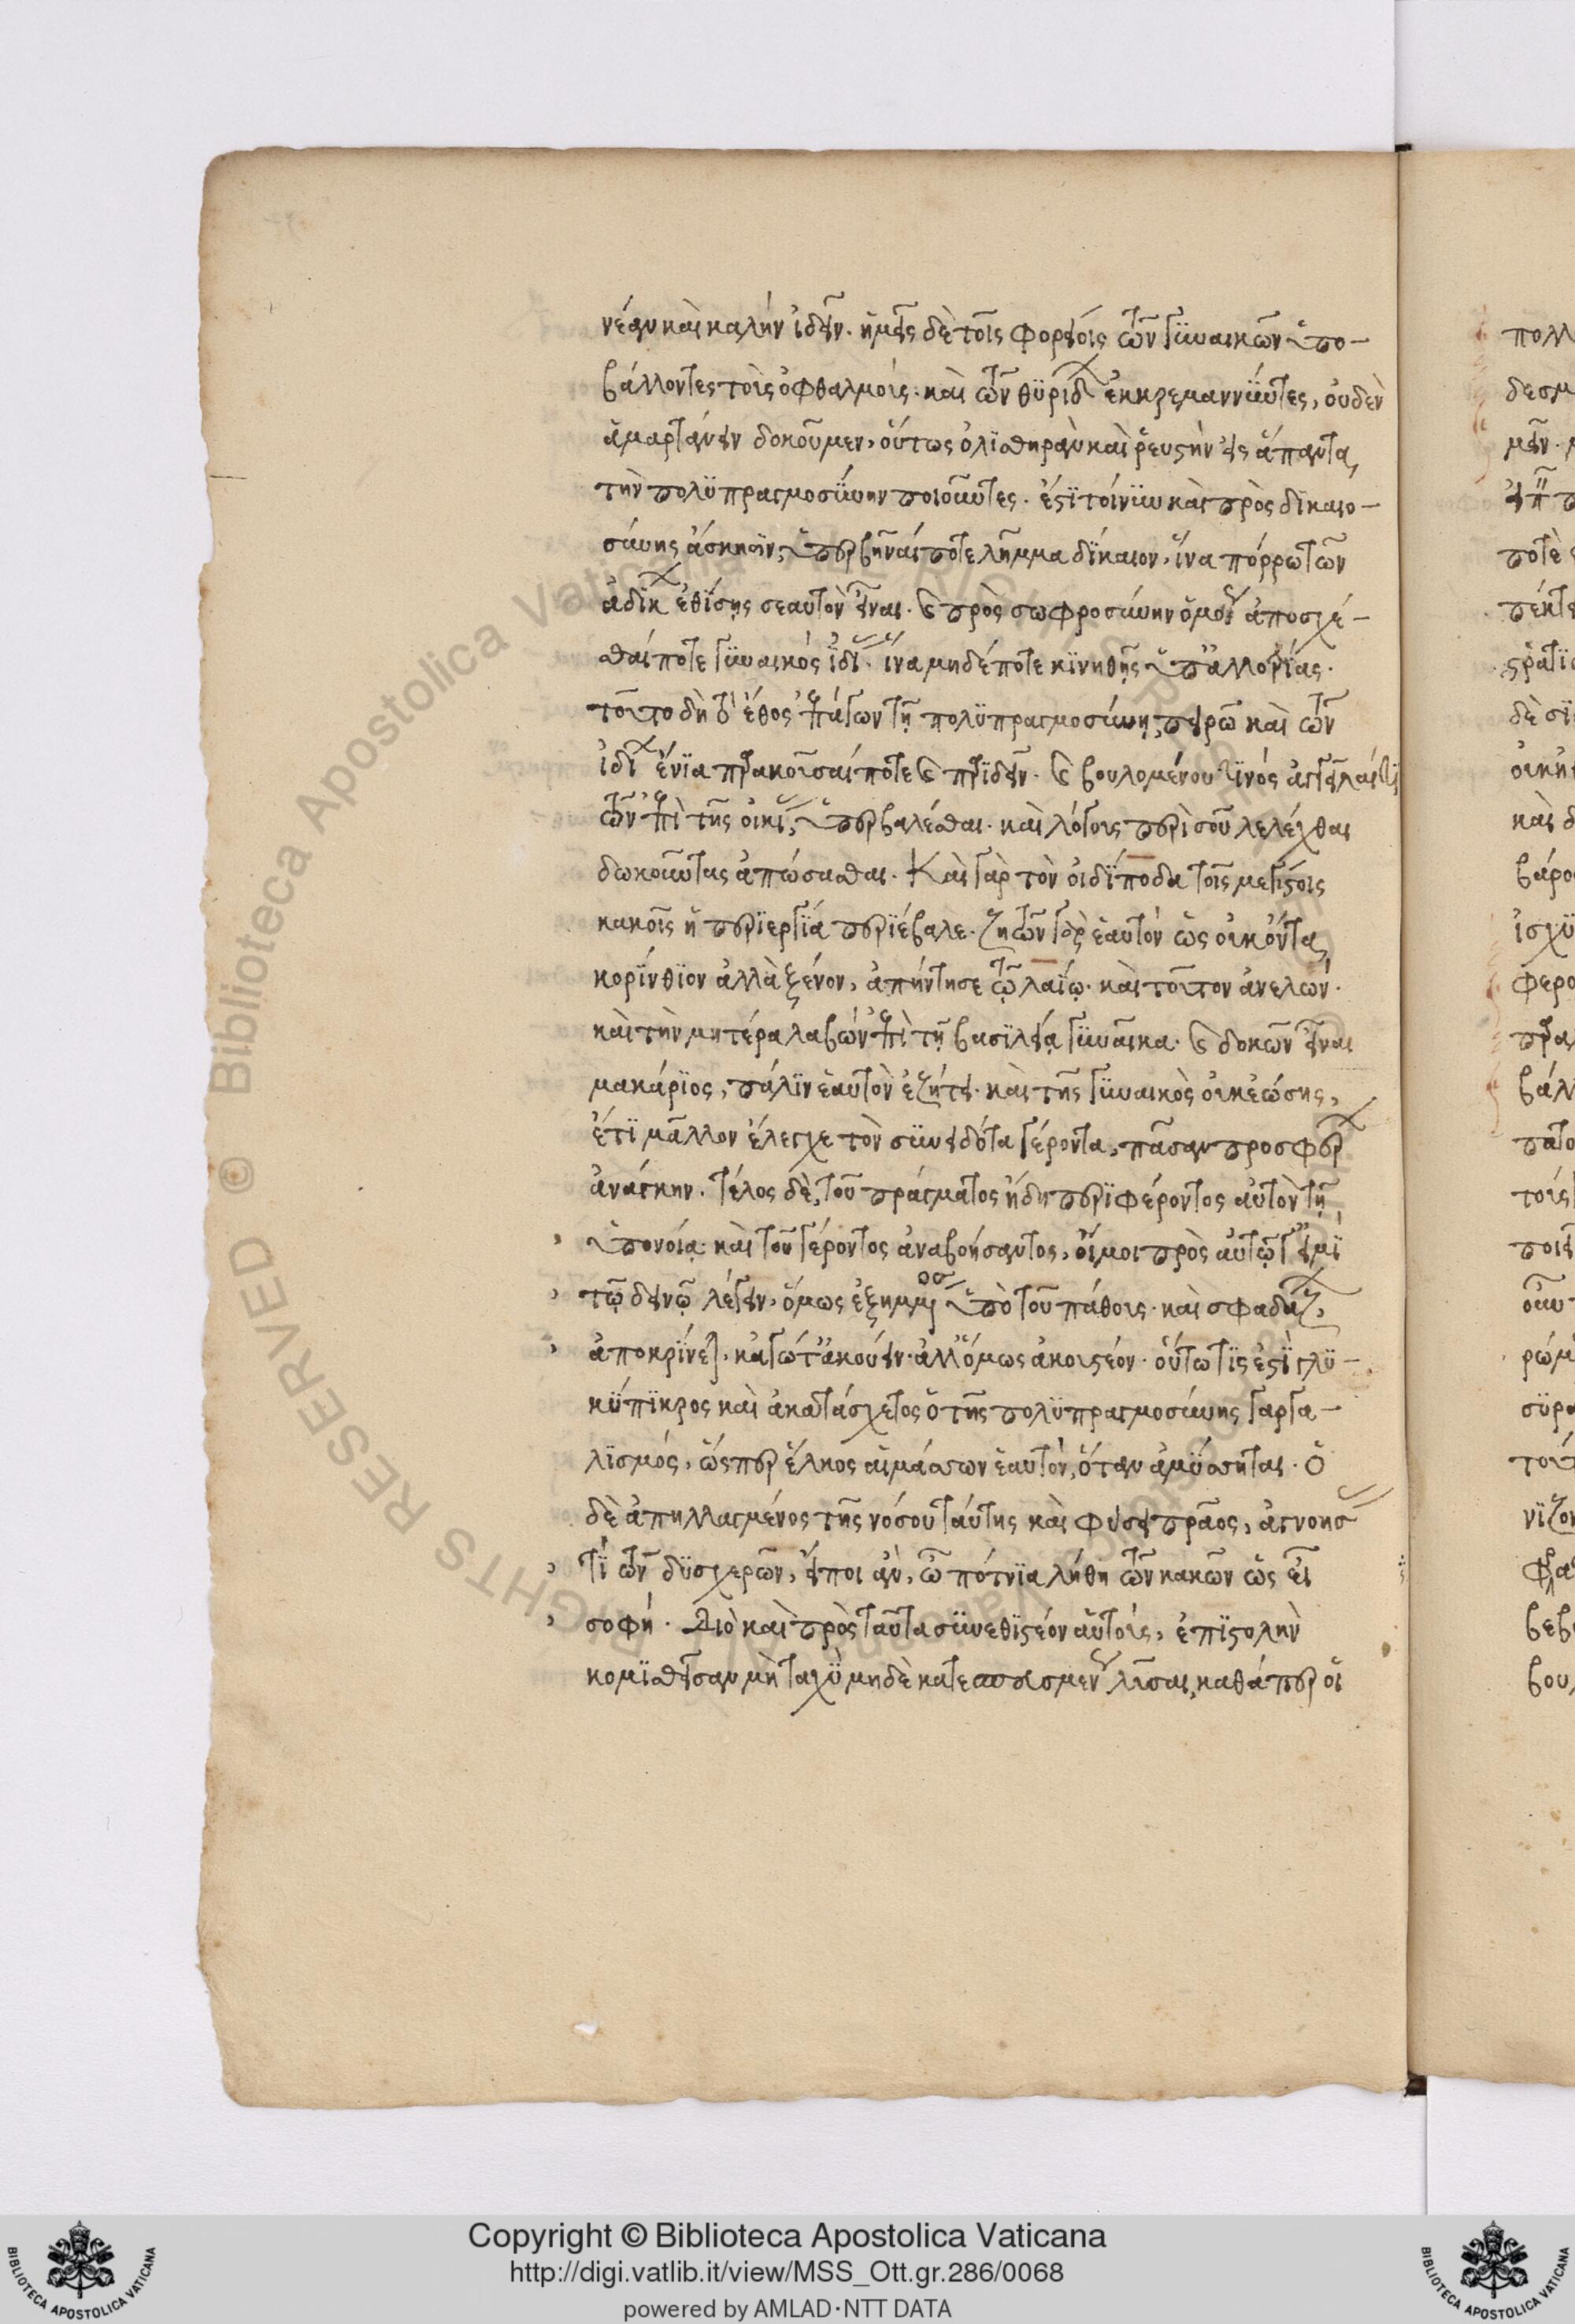 νέαν καὶ καλὴν ἰδεῖν. ἡμεῖς δὲ τοῖς φορείοις τῶν γυναικῶν ὑπο-
βάλλοντες τοὺς ὀφθαλμούς. καὶ τῶν θυρίδων ἐκκρεμαννύντες, οὐδὲν
ἁμαρτάνειν δοκοῦμεν, οὕτως ὀλισθηρὰν καὶ ῥευστὴν εἰς ἅπαντα
τὴν πολυπραγμοσύνην ποιοῦντες. ἔστι τοίνυν καὶ πρὸς δικαιο-
σύνης ἄσκησιν, ὑπερβῆναί ποτε λῆμμα δίκαιον, ἵνα πόρρω τῶν
ἀδίκων ἐθίσῃς σεαυτὸν εἶναι. καὶ πρὸς σωφροσύνην ὁμοίως ἀποσχέ-
σθαί ποτε γυναικὸς ἰδίας. ἵνα μηδέποτε κινηθῇς ὑπ' ἀλλοτρίας.
τοῦτο δὴ τὸ ἔθος ἐπάγων τῇ πολυπραγμοσύνῃ, πειρῶ καὶ τῶν
ἰδίων ἔνια παρακοῦσαί ποτε καὶ παριδεῖν. καὶ βουλομένου τινός ἀγγεῖλαί τι
τῶν ἐπὶ τῆς οἰκίας, ὑπερβαλέσθαι. καὶ λόγους περὶ σοῦ λελέχθαι
δοκοῦντας ἀπώσασθαι. Καὶ γὰρ τὸν οἰδίποδα τοῖς μεγίστοις
κακοῖς ἡ περιεργία περιέβαλε. ζητῶν γὰρ ἑαυτὸν ὡς οὐκ ὄντα
κορίνθιον ἀλλὰ ξένον, ἀπήντησε τῷ λαΐῳ. καὶ τοῦτον ἀνελών.
καὶ τὴν μητέρα λαβών ἐπὶ τῇ βασιλείᾳ γυναῖκα. καὶ δοκῶν εἶναι
μακάριος, πάλιν ἑαυτὸν ἐζήτει. καὶ τῆς γυναικὸς οὐκ ἐώσης,
ἔτι μᾶλλον ἤλεγχε τὸν συνειδότα γέροντα, πᾶσαν προσφέρων
ἀνάγκην. τέλος δὲ, τοῦ πράγματος ἤδη περιφέροντος αὐτὸν τῇ
ὑπονοίᾳ. καὶ τοῦ γέροντος ἀναβοήσαντος, οἴμοι πρὸς αὐτῷ γ' εἰμὶ
τῷ δεινῷ λέγειν, ὅμως ἐξημμένος ὑπὸ τοῦ πάθους. καὶ σφαδάζων,
ἀποκρίνεται. κἄγωγ' ἀκούειν. ἀλλ' ὅμως ἀκουστέον. οὕτω τίς ἐστὶ γλυ-
κύπικρος καὶ ἀκατάσχετος ὁ τῆς πολυπραγμοσύνης γαργα-
λισμός, ὥσπερ ἕλκος αἱμάσσων ἑαυτόν, ὅταν ἀμύσσηται. Ὁ
δὲ ἀπηλλαγμένος τῆς νόσου ταύτης καὶ φύσει πρᾶος, ἀγνοήσας
τὶ τῶν δυσχερῶν, εἴποι ἂν, ὦ πότνια λήθη τῶν κακῶν ὡς εἶ
σοφή. Διὸ καὶ πρὸς ταῦτα συνεθιστέον αὐτοὺς, ἐπιστολὴν
κομισθεῖσαν μὴ ταχὺ μηδὲ κατεσπευσμένως λῦσαι, καθάπερ οἱ
Copyright © Biblioteca Apostolica Vaticana
http://digi.vatlib.it/view/MSS_Ott.gr.286/0068
powered by AMLAD·NTT DATA